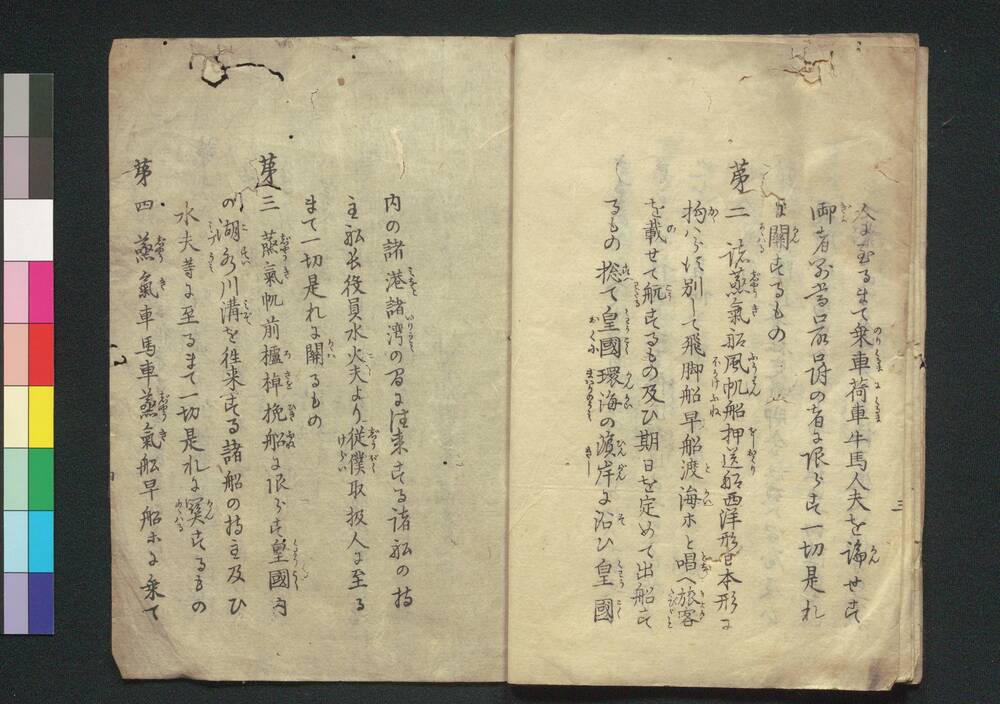 に至るまて乗車荷車牛馬人夫を論せす
御者別当口取踌の者に限らす一切是れ
に関するもの
第二 諸蒸氣船風帆船押送船西洋形日本形に
拘ハらす別して飛脚船早船渡海ホと唱へ旅客
を載せて航するもの及ひ期日を定めて出船す
るもの捴て皇國環海の濵岸に沿ひ皇國
内の諸港諸湾の間に往来する諸船の持
主船長役員水火夫より従僕取扱人に至る
まて一切是れに関るもの
第三 蒸氣帆前櫨棹挽船に限らす皇國内
の湖水川溝を往来する諸船の持主及ひ
水夫等に至るまて一切是れに関するもの
第四 蒸氣車馬車蒸氣船早船ホに乗て
三